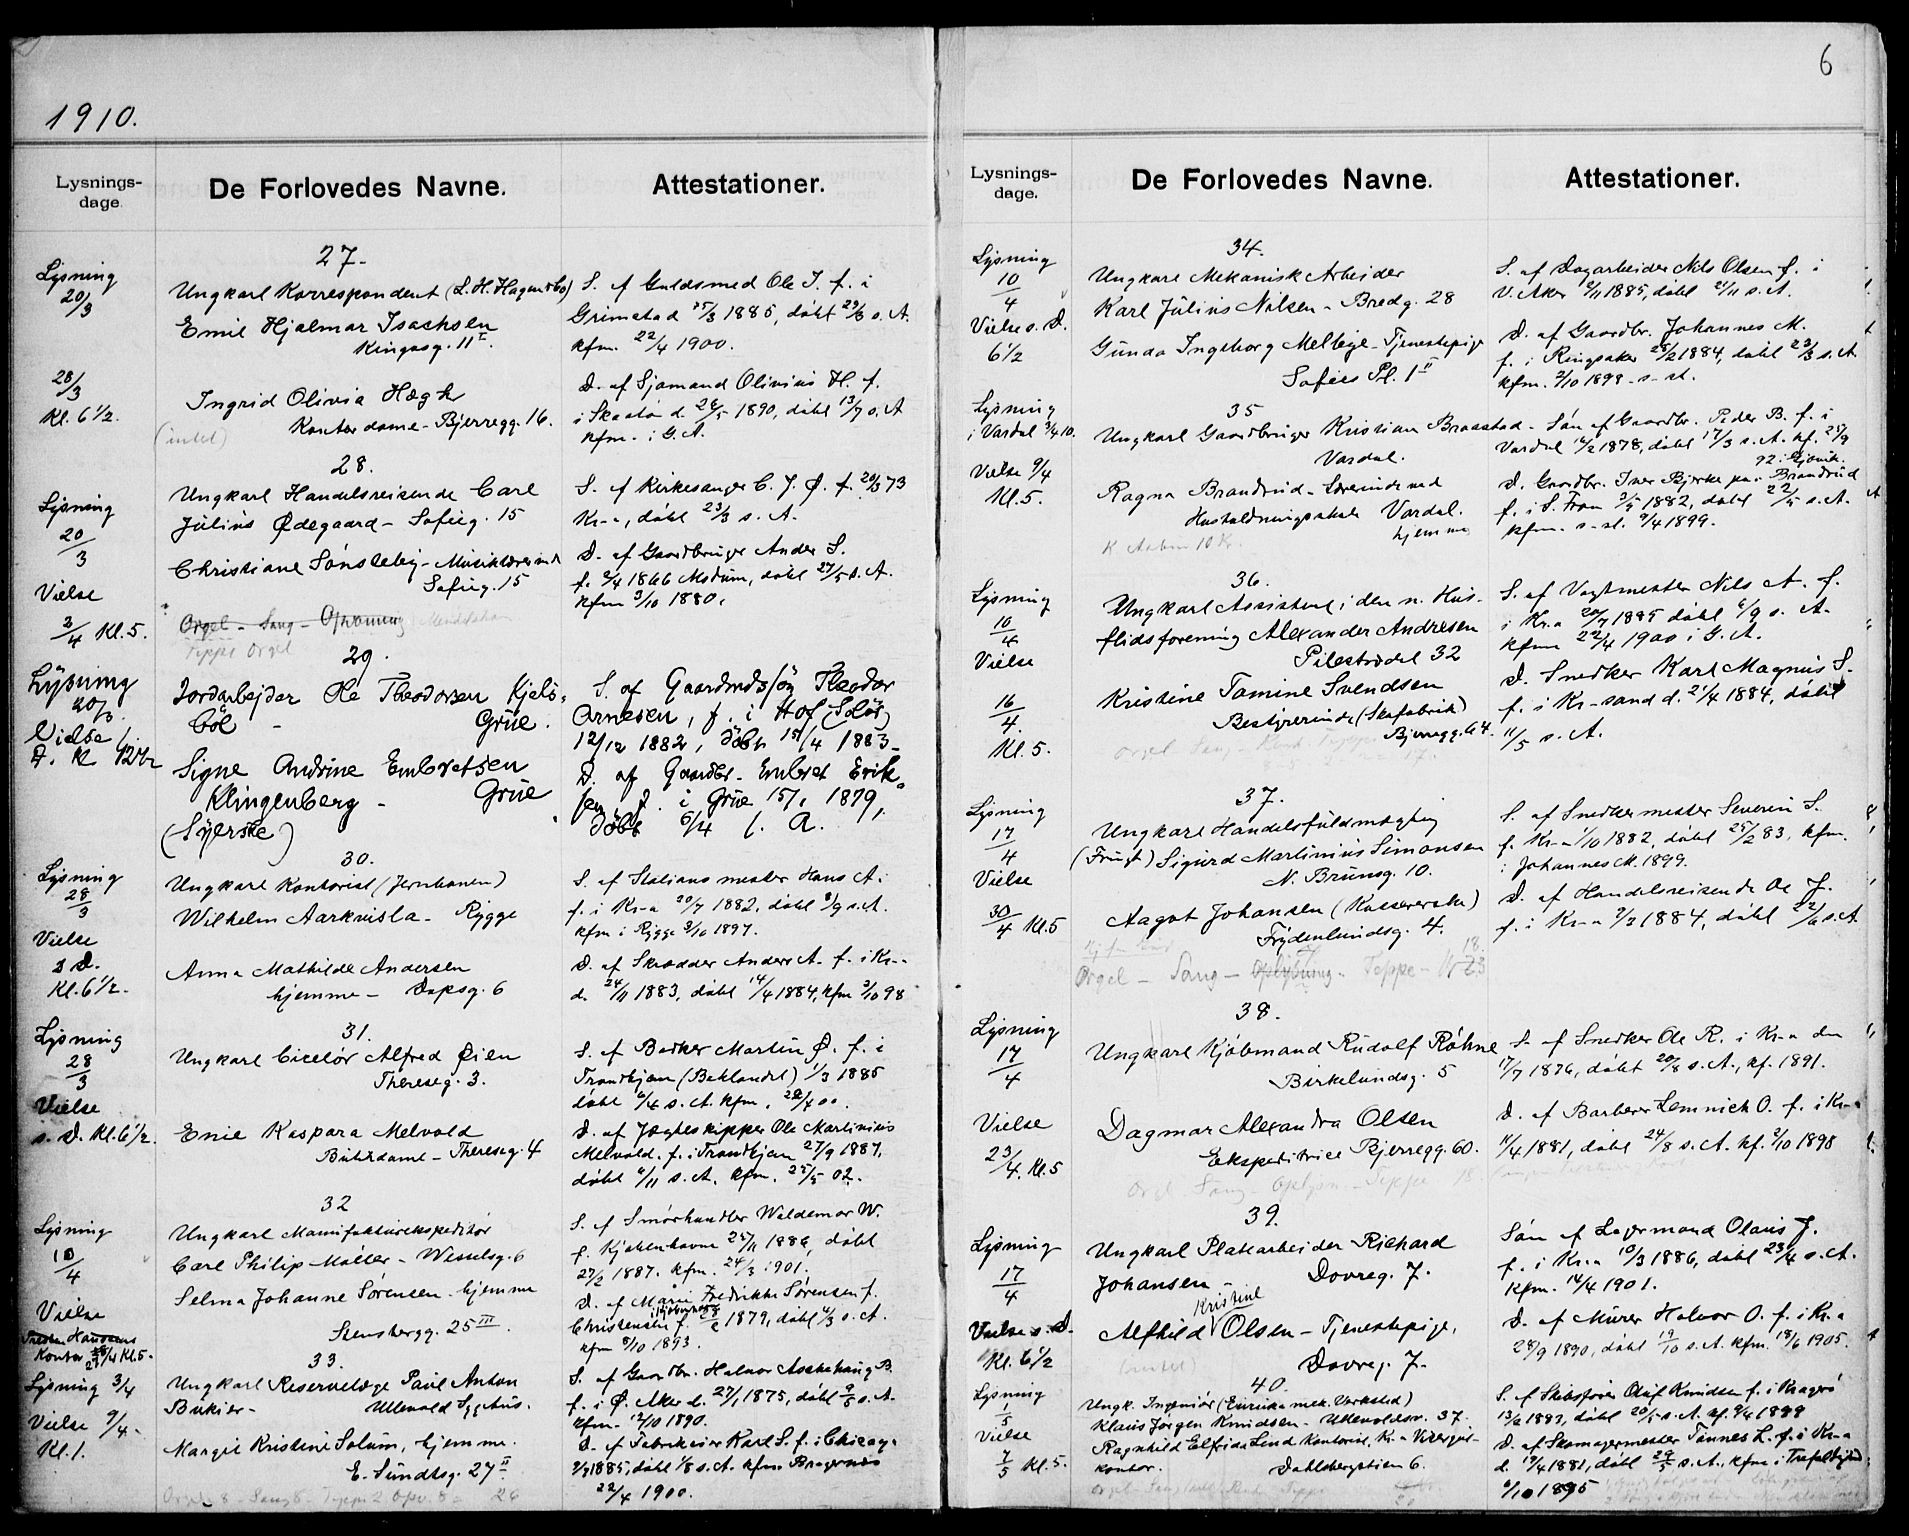 1910.
Lysnings-
dage.
De Forlovedes Navne.
Attestationer.
27.
Lysning
20/3
28/3
Kl. 6 1/2.
Ungkarl Korrespondent (L. H. Hagen &Co)
Emil Hjalmar Isachsen
Kingosg. 11 I.
Ingrid Olivia Hægh
Kontordame - Bjerregg. 16.
(intet)
S. af Guldsmed Ole I. f. i
Grimstad 25/3 1885, döbt 29/3 s. A.
kfm. 22/4 1900.
D. af Sjömand Olivius H. f.
i Skaatö d. 26/5 1890, döbt 13/7 s. A
kfm. i G. A.
28.
Lysning
20/3
Vielse
2/4 Kl. 5.
Ungkarl Handelsreisende Carl
Julius Ødegaard - Sofieg. 15
Christiane Sönsteby - Musiklærerinde
Sofieg. 15
Orgel - Sang - Oplysning
Teppe Orgel
S. af Kirkesanger C. J. Ø. f. 20/3 73
Kr-a, döbt 23/3 s. A.
D. af Gaardbruger Anders S.
f. 2/4 1866 Modum, döbt 27/5 s. A.
kfm 3/10 1880.
29.
Lysning
20/3
Vielse
D. Kl 12 1/2
Jordarbejder Ole Theodorsen Kjels-
böl - Grue.
Signe Andrine Embretsen
Klingenberg - Grue
(Syerske)
S. af Gaardmdssøn Theodor
Arnesen, f. i Hof (Solør)
12/12 1882, döbt 15/4 1883-
D. af Gaardbr. Embret Erik-
sen, f. i Grue 15/1 1879,
döbt 6/4 s. A.
30.
Lysning
28/3
Vielse
s D.
Kl. 6 1/2.
Ungkarl Kontorist (Jernbanen)
Wilhelm Aarkvisla - Rygge
Anna Mathilde Andersen
hjemme - Dopsg. 6
S. af Stationsmester Hans A.
f. i Kr-a 20/7 1882, döbt 3/9 s. A.
kfm i Rygge 3/10 1897.
D. af Skrædder Anders A. f. i Kr-a
d. 24/11 1883, döbt 14/4 1884, kfm 2/10 98
31.
Lysning
28/3
Vielse
s. D. Kl. 6 1/2.
Ungkarl Ciselör Alfred Øien
Thereseg. 3.
Enie Kaspara Melvold
Butikdame - Thereseg. 4
S. af Bødker Martin Ø. f. i
Trondhjem (Baklandet) 1/3 1885
döbt 6/4 s. A. kfm. 22/4 00.
D. af Jægteskipper Ole Martinius
Melvold. f. i Trondhjem 27/9 1887,
döbt 6/11 s. A. kfm. 25/5 02.
32
Lysning
10/4
Vielse
Kontor 27/4 Kl. 5.
Ungkarl Manufakturekspeditör
Carl Philip Möller - Wesselsg. 6
Selma Johanne Sørensen - hjemme
Stensbergg. 25 III.
S. af Smörhandler Waldemar W.
f. Kjøbenhavn 25/11 1886, döbt
27/2 1887. kfm. 24/3 1901.
D. af Marie Fredrikke Sørensen f.
Christensen f. 1879, döbt 4/3 s. A.
kfm 8/10 1893.
33.
Lysning 3/4
Vielse 9/4 -
Kl. 1.
Ungkarl Reservelæge Paul Anton
Bukier - Ullevold Sygehus.
Margit Kristine Solum, hjemme.
E. Sundtsg. 27 II
S. af Gaardbr. Halvor Aschehaug B.
f. i Ø. Aker d. 27/1 1875, döbt 9/5 s. A.
kfm. 12/10 1890.
D. af Fabrikeier Karl S. f. i Chicago
2/7 1885, döbt 1/8 s. A. kfm. Bragernes
22/4 1900.
6
Lysnings-
dage.
De Forlovedes Navne.
Attestationer.
34.
Lysning
10/4
Vielse s. D.
6 1/2
Ungkarl Mekanisk Arbeider
Karl Julius Nilsen - Bredg. 28
Gunda Ingeborg Melbye - Tjenestepige
Sofies Pl. 1 II
S. af Dagarbeider Nils Olsen f. i
V. Aker 2/11 1885, döbt 21/11 s. A.
D. af Gaardbr. Johannes M.
f. i Ringsaker 25/2 1884, döbt 23/3 s. A
kfm. 2/10 1898 - s. st.
35
Lysning
i Vardal 3/4 10.
Vielse 9/4
Kl. 5.
Ungkarl Gaardbruger Kristian Braastad -
Vardal.
Ragna Brandrud - Lærerinde ved
Husholdningsskole Vardal.
hjemme
K Aaben 10 Kr.
Søn af Gaardbr. Peder B. f. i
Vardal 14/2 1878, döbt 17/3 s. A. kf. 25/9
92 i Gjøvik.
D. Gaardbr. Iver Bjerke paa Brandrud
f. i S. Fron 3/5 1882, döbt 22/5 s. A.
kfm. s. st. 9/4 1899.
36.
Lysning
10/4
Vielse
16/4.
Kl. 5.
Ungkarl Assistent i den n. Hus-
flidsforening Alexander Andresen
Pilestrædet 32
Kristine Tomine Svendsen
Bestyrerinde (Skofabrik)
Bjerregg. 64.
S. af Vagtmester Nils A. f.
i Kr.a 20/7 1885 döbt 6/9 s. A.
kfm 22/4 1900 i G. A.
D. Snedker Karl Magnus S.
f. i Kr-sand d. 21/4 1884, döbt
11/5 s. A.
37.
Lysning
17/4
Vielse
30/4 Kl. 5
Ungkarl Handelsfuldmægtig
(Frugt) Sigurd Martinius Simonsen
N. Brunsg. 10.
Aagot Johansen (Kassererske)
Frydenlundsg. 4.
Orgel - Sang - Oplysning - Teppe -
S. af Snedkermester Severin S.
f. Kr-a 1/10 1882, döbt 25/2 83, kfm.
i Johannes M. 1899.
D. af Handelsreisende Ole J.
f. i Kr-a 2/2 1884, döbt 22/6 s. A
38.
Lysning
17/4
Vielse
23/4. Kl. 5
Ungkarl Kjöbmand Rudolf Röhne
Birkelundsg. 5
Dagmar Alexandra Olsen
Ekspeditrice Bjerregg. 60.
S. af Snedker Ole R. i Kr-a den
17/7 1876, döbt 20/8 s. A., kf. 1891.
D. af Barberer Lemnich O. f. i Kr-a
11/4 1881, döbt 24/8 s. A. kf. 2/10 1898
39.
Lysning
17/4
Vielse s. D.
Kl. 6 1/2
Ungkarl Platearbeider Richard
Johansen - Dovreg. 7.
Kristine
Alfhild Olsen - Tjenestepige,
(intet) Dovreg. 7.
Søn af Lagermand Olaus J.
f. i Kr.a 10/3 1886, döbt 23/4 s. A.
kfm. 14/4 1901.
D. af Murer Halvor O. f. i Kr.a
28/9 1890, döbt 19/10 s. A. kfm. 18/6 1905.
40.
Lysning
1/5
Vielse
7/5 Kl. 5.
Ungk. Ingeniör (Eureka mek. Verksted)
Klaus Jörgen Knudsen - Ullevoldsv. 37.
Ragnhild Elfrida Lund Kontorist, Kr.a Vexeger-
kontor. Dahlsbergstien 6.
S. af Skibsfører Oluf Knudsen f. i Kragerö
13/2 1883, döbt 20/5 s. A. kf. 9/4 1899
D. af Skomagermester Tönnes L. f. i Kr-a
d. 17/4 1881, döbt 29/5 s. A., kfm i Trefoldighed
6/10 1895